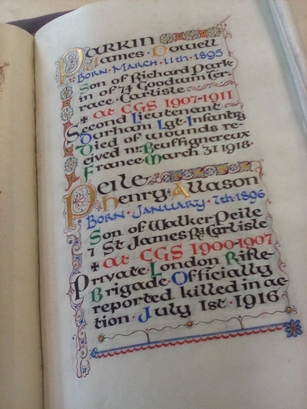 Parkin
James · Dowell
Born · March · 11th · 1895
Son of Richard Park-
in of 74 Goodwin Ter-
race · Carlisle ·
✠ at CGS 1907-1911
Second Lieutenant
Durham Lgt · Infantry
Died of wounds re-
ceived nr: Beuffignereux
France March 31 1918 ·
Peile
Henry · Allason
Born · January · 7th · 1896
Son of Walker Peile
7 St James Rd: Carlisle
✠ at CGS 1900-1907
Private London Rifle
Brigade · Officially
reported killed in ac-
tion · July 1st · 1916 ·